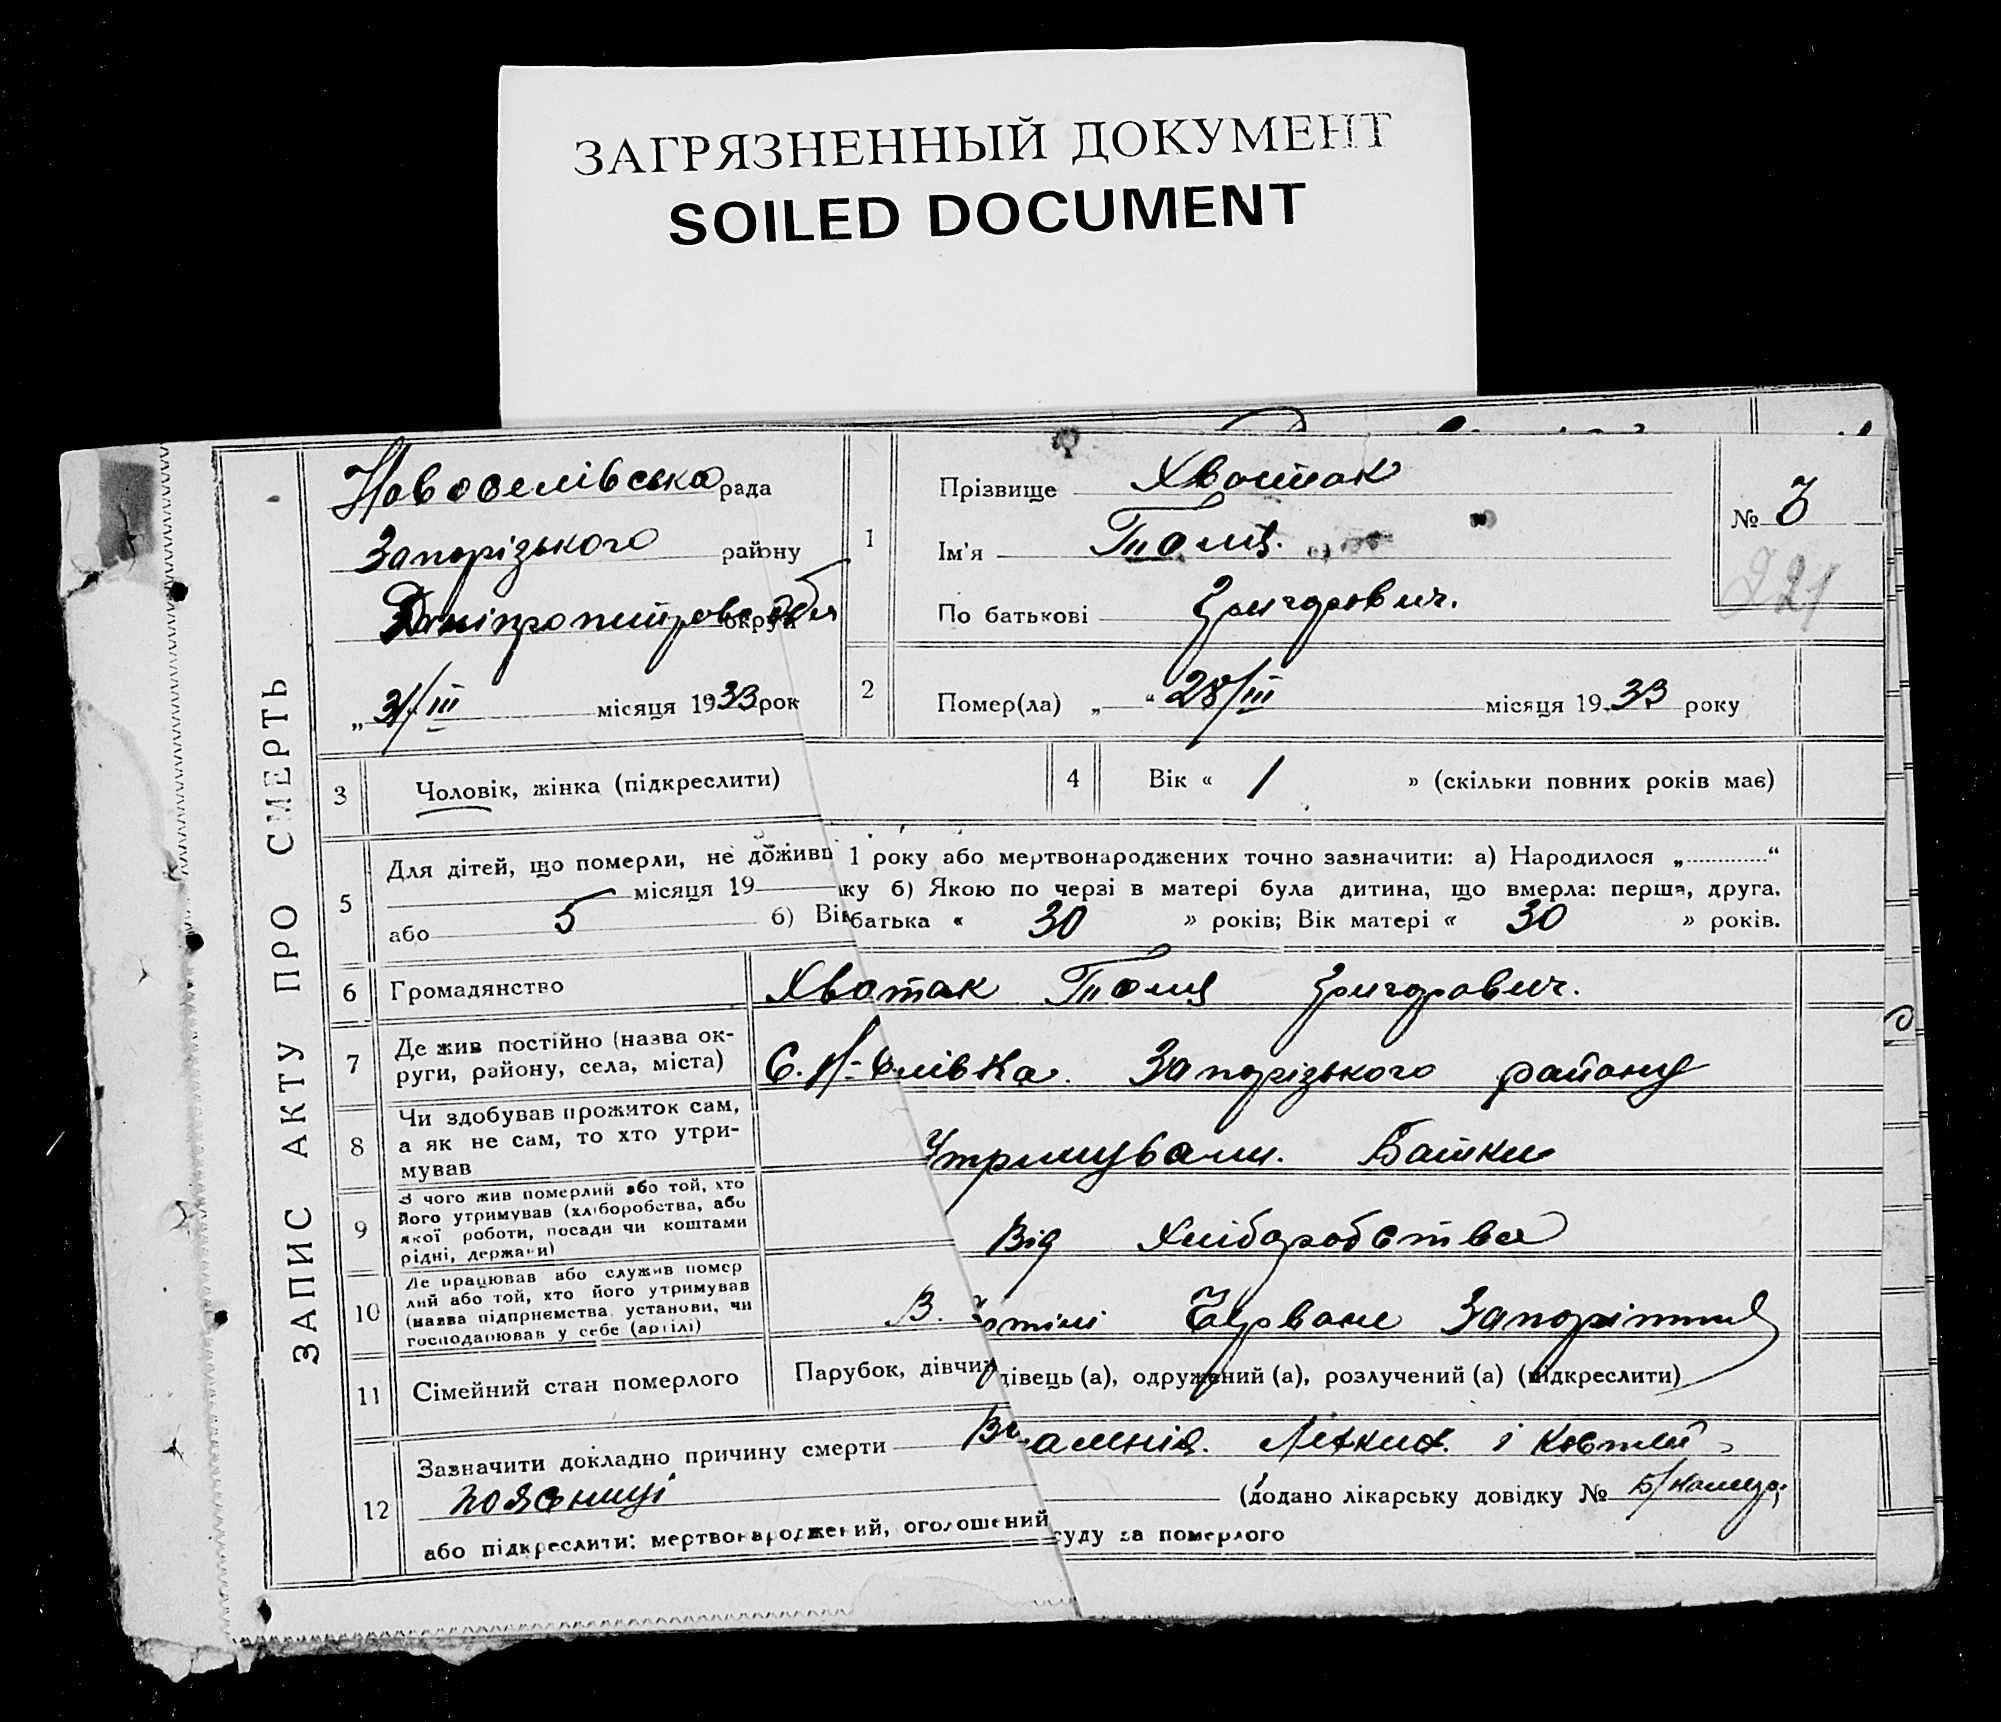 ЗАГРЯЗНЕННЫЙ ДОКУМЕНТ
SOILED DOCUMENT
ЗАПИС АКТУ ПРО СМЕРТЬ
Новоселівська рада
Запорізького району
округи
„31/III місяця 1933 рок
1 Прізвище Хвостак
Ім'я Толя.
По батькові Григорович.
№ 3
221
2 Помер(ла) „ “ 28/III місяця 1933 року
3 Чоловік, жінка (підкреслити)
4 Вік « 1 » (скільки повних років має)
5 Для дітей, що померли, не дожив 1 року або мертвонароджених точно зазначити: а) Народилося „ “
місяця 19 ку б) Якою по черзі в матері була дитина, що вмерла: перша, друга.
або 5 б) Вік батька « 30 » років; Вік матері « 30 » років.
6 Громадянство Хвотак Толя Григорович.
7 Де жив постійно (назва ок-
руги, району, села, міста) С. Н- лівка. Запорізького району
8 Чи здобував прожиток сам,
а як не сам, то хто утри-
мував Утримували. Батьки
9 З чого жив померлий або той, хто
його утримував (хліборобства, або
якої роботи, посади чи коштами
рідні, держави) Від Хліборобства
10 Де працював або служив помер
лий або той, хто його утримував
(назва підприємства установи, чи
господарював у себе (артілі) В. ртілі Червоне
11 Сімейний стан померлого Парубок, дівчин дівець (а), одружений (а), розлучений (а) (підкреслити)
12 Зазначити докладно причину смерти Легких. і
(додано лікарську довідку №
або підкреслити: мертвонароджений, оголошений суду за померлого